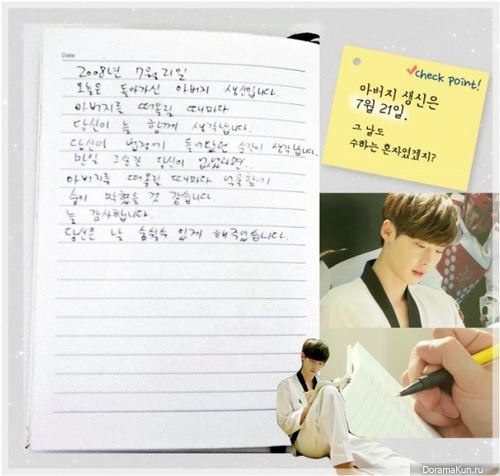 Date
2008년 7월 21일
오늘은 돌아가신 아버지 생신입니다.
아버지를 떠올릴 때마다
당신이 늘 함께 생각납니다.
당신이 법정에 들어왔던 순간이 생각납니다.
만일 그 순간 당신이 없었다면..
아버지를 떠올릴 때마다 억울함에
숨이 막혔을 것 같습니다.
늘 감사합니다.
당신은 날 숨쉴수 있게 해주었습니다.
check point!
아버지 생신은
7월 21일.
그 날도
수하는 혼자였겠지?
DoramaKun.ru